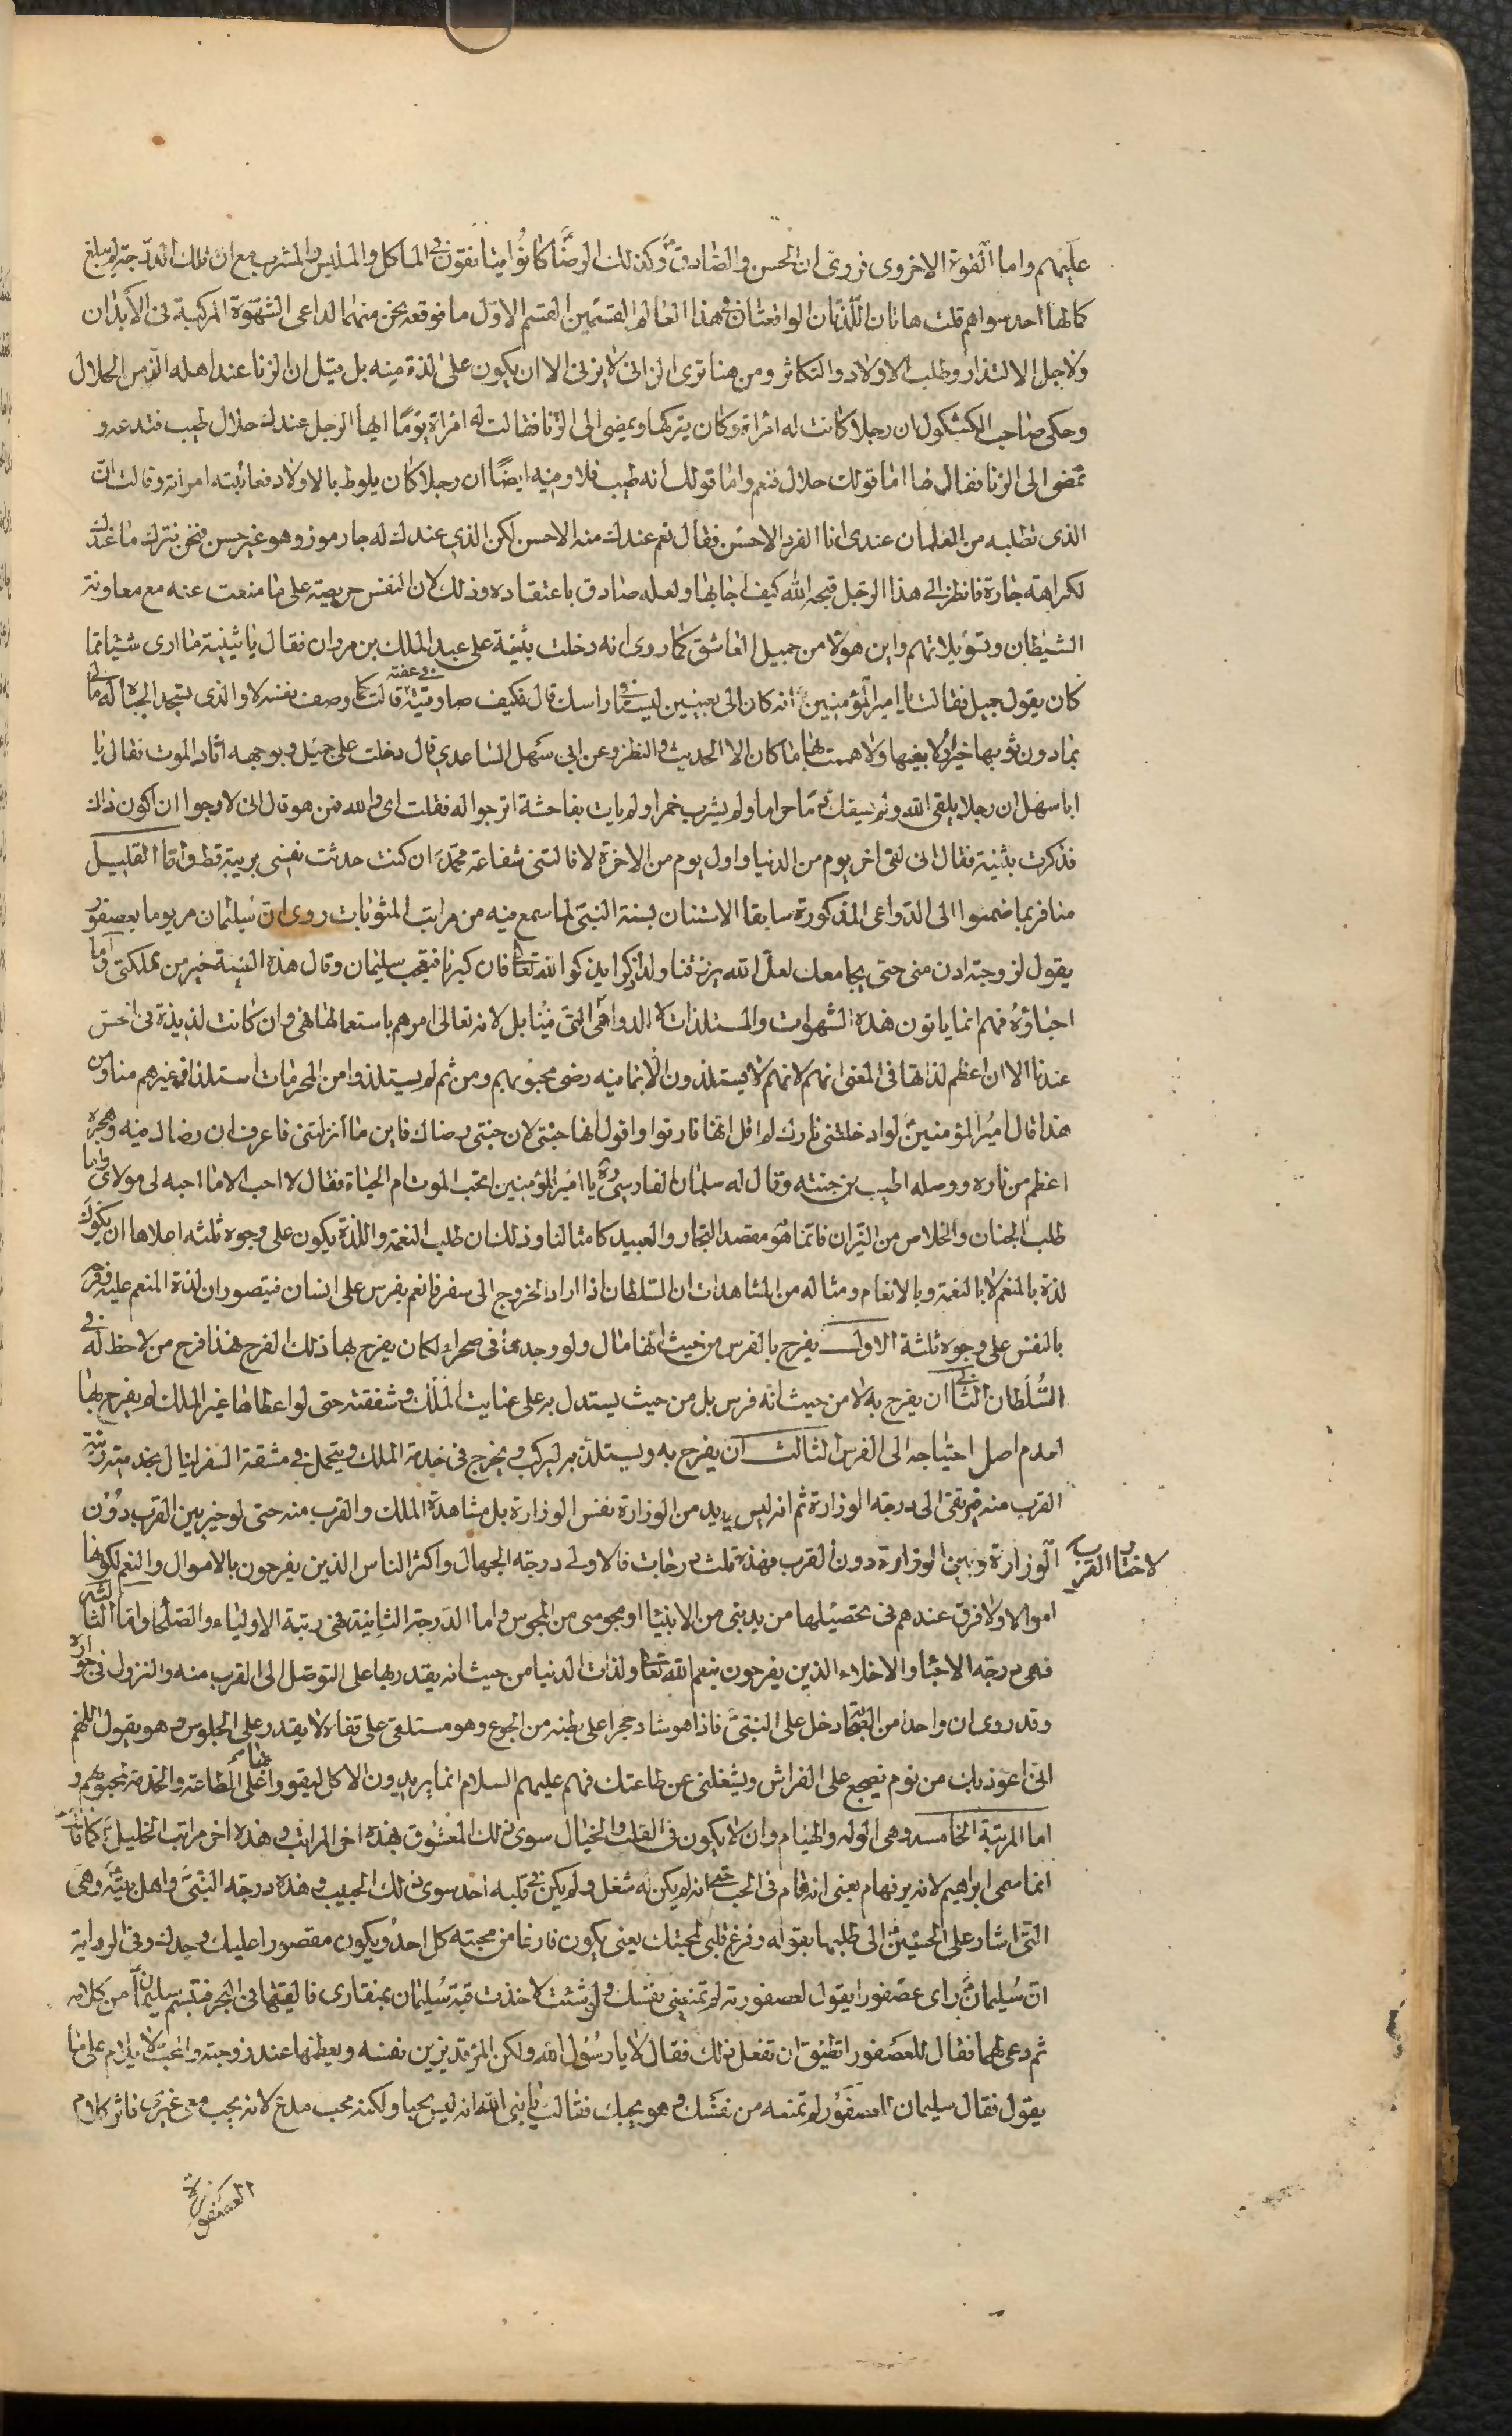 عليهم واما القوة الاخروى فروى ان الحسن والصادق وكذلك الرضا كانوا يتانقون فى الماكل والملبس والمشرب مع ان تلك الدرجة لم يبلغ
كمالها احد سواهم قلت هاتان اللذتان الواقعتان فى هذا العالم القسمين القسم الاول ما نوقعه نحن منهما لداعى الشهوة المركبة فى الابدان
ولاجل الالتذاذ وطلب الاولاد والتكاثر ومن هنا ترى الزانى لا يزنى الا ان يكون على لذة منه بل قيل ان الزنا عند اهله الذ من الحلال
وحكى صاحب الكشكول ان رجلا كانت له امراة وكان يتركها ويمضى الى الزنا فقالت له امراة يوما ايها الرجل عندك حلال طيب فتدعه و
تمضى الى الزنا فقال لها اما قولك حلال فنعم واما قولك انه طيب فلا وفيه ايضا ان رجلا كان يلوط بالاولاد فعاتبته امراته وقالت ان
الذى تطلبه من الغلمان عندى انا الفرد الاحسن فقال نعم عندك منه الاحسن لكن الذى عندك له جار موذ وهو غير حسن فنحن نترك ما عندك
لكراهة جاره فانظر الى هذا الرجل قبحه الله كيف اجابها ولعله صادق باعتقاده وذلك لان النفس حريصة على ما منعت عنه مع معاونة
الشيطان وتسويلاتهم واين هؤلا من جميل العاشق كما روى انه دخلت بثينة على عبد الملك بن مروان فقال يا بثينة ما ارى شيئا مما
كان يقول جميل فقالت يا امير المؤمنين انه كان الى بعينين ليستا فى راسك قال فكيف صادفتيه فى عفته قالت كما وصف نفسه لا والذى تسجد الجباه له ما لى
بما دون ثوبها خبر ولا بفيها ولا هممت بها ما كان الا الحديث والنظر وعن ابى سهل الساعدى قال دخلت على جميل وبوجهه اثار الموت فقال يا
ابا سهل ان رجلا يلقى الله ولم يسفك دما حراما ولم يشرب خمرا ولم يات بفاحشة اترجوا له فقلت اى والله فمن هو قال انى لارجوا ان اكون ذاك
فذكرت بثينة فقال انى لفى اخر يوم من الدنيا واول يوم من الاخرة لا نالتنى شفاعة محمد ان كنت حدثت نفسى بريبة قط واما القليل
منا فربما ضموا الى الدواعى المذكورة سابقا الاستنان بسنة النبى لما سمع فيه من مراتب المثوبات روى ان سليمان مر يوما بعصفور
يقول لزوجته ادن منى حتى يجامعك لعل الله يرزقنا ولد ذكرا يذكر الله تعالى فان كبرنا فتعجب سليمان وقال هذه النية خير من مملكتى واما
احباؤه فهم انما ياتون هذه الشهوات والمستلذات لا لدواعى التى فينا بل لانه تعالى امرهم باستعمالها فهى وان كانت لذيذة فى الحس
عندنا الا ان اعظم لذاتها فى المعنى انهم لانهم لا يستلذون الا بما فيه رضى محبوبهم ومن ثم لم يستلذوا من المحرمات استلذاذ غيرهم منا ومن
هذا قال امير المؤمنين لو ادخلتنى نارك لم اقل انها نار نوا واقول انها جنتى لان جنتى رضاك فاين ما انزلتنى فاعرف ان رضاك فيه وهجره
اعظم من ناره ووصله اطيب من جنته وقال له سلمان الفارسى يا امير المؤمنين اتحب الموت ام الحياة فقال لا احب الا ما احبه لى مولاى واما
طلب الجنان والخلاص من النيران فانما هو مقصد التجار والعبيد كامثالنا وذلك ان طلب النعمة واللذة يكون على وجوه ثلثه اعلاها ان يكون
لذة بالمنعم لا بالنعمة وبالانعام ومثاله من المشاهدات ان السلطان اذا اراد الخروج الى سفر فانعم بفرس على انسان فيتصور ان لذة المنعم عليه وفرحه
بالنفس على وجوه ثلثة الاول يفرح بالفرس من حيث انها مال ولو وجدها فى صحراء لكان يفرح بها ذلك الفرح فهذا فرح من لا حظ له فى
السلطان الثانى ان يفرح به لا من حيث انه فرس بل من حيث يستدل به على عنايت الملك وشفقته حتى لو اعطاها غير الملك لم يفرح بها
لعدم اصل احتياجه الى الفرس الثالث ان يفرح به ويستلذ به ليركب ويخرج فى خدمة الملك ويتحمل فى مشقة السفر لينال بخدمته رتبة
القرب منه فيرتقى الى درجة الوزارة ثم انه ليس يريد من الوزارة نفس الوزارة بل مشاهدة الملك والقرب منه حتى لو خير بين القرب دون
الوزارة وبين الوزارة دون القرب لاختار القرب فهذه ثلث درجات فالاولى درجة الجهال واكثر الناس الذين يفرحون بالاموال والنعم لكونها
اموالا ولا فرق عندهم فى تحصيلها من يد نبى من الانبيا او مجوسى من المجوس واما الدرجة الثانية فهى رتبة الاولياء والصلحا واما الثالثة
فهى درجة الاحبا والاخلاء الذين يفرحون بنعم الله تعالى ولذات الدنيا من حيث انه يقتدر بها على التوصل الى القرب منه والنزول فى جواره
وقد روى ان واحدا من الصحابة دخل على النبى فاذا هو شاد حجرا على بطنه من الجوع وهو مستلقى على قفاه لا يقدر على الجلوس وهو يقول اللهم
انى اعوذ بك من نوم يضجع على الفراش ويشغلنى عن طاعتك فهم عليهم السلام انما يريدون الاكل ليقووا على الطاعة والخدمة لمحبوبهم و
اما المرتبة الخامسه وهى الوله والهيام وان لا يكون فى القلب والخيال سوى ذلك المعشوق فهذه اخر المراتب وهذه اخر مراتب الخليل كما قال
انما سمى ابراهيم لانه بر فهام يعنى انه هام فى الحب حتى انه لم يكن له شغل ولم يكن فى قلبه احد سوى ذلك الحبيب وهذه درجة النبى واهل بيته وهى
التى اشار على الحسين الى طلبها بقوله وفرغ قلبى لمحبتك يعنى يكون فارغا من محبته كل احد ويكون مقصورا عليك وحدك وفى الرواية
ان سليمان راى عصفورا يقول لعصفورته لم تمنعينى نفسك ولو شئت لاخذت قبة سليمان بمنقارى فالقيتها فى البحر فتبسم سليمان من كلامه
ثم دعى لهما فقال للعصفور اتطيق ان تفعل ذلك فقال لا يا رسول الله ولكن المرء قد يزين نفسه ويعظمها عند زوجته والمحب لا يلام على ما
يقول فقال سليمان للعصفور لم تمنعه من نفسك وهو يحبك فقالت يا نبى الله انه ليس بحبا ولكنه محب مدع لانه يحب معى غيرى فاثر كلام
العصفورة